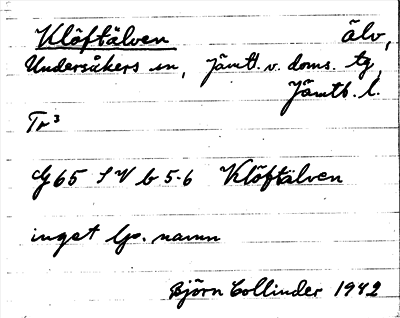 Klöftälven älv,
Undersåkers sn, Jämtl. v. doms. tg,
Jämtl. l.
Tr³
G65 SV b 5-6 Klöftälven
inget lp. namn
Björn Collinder 1942